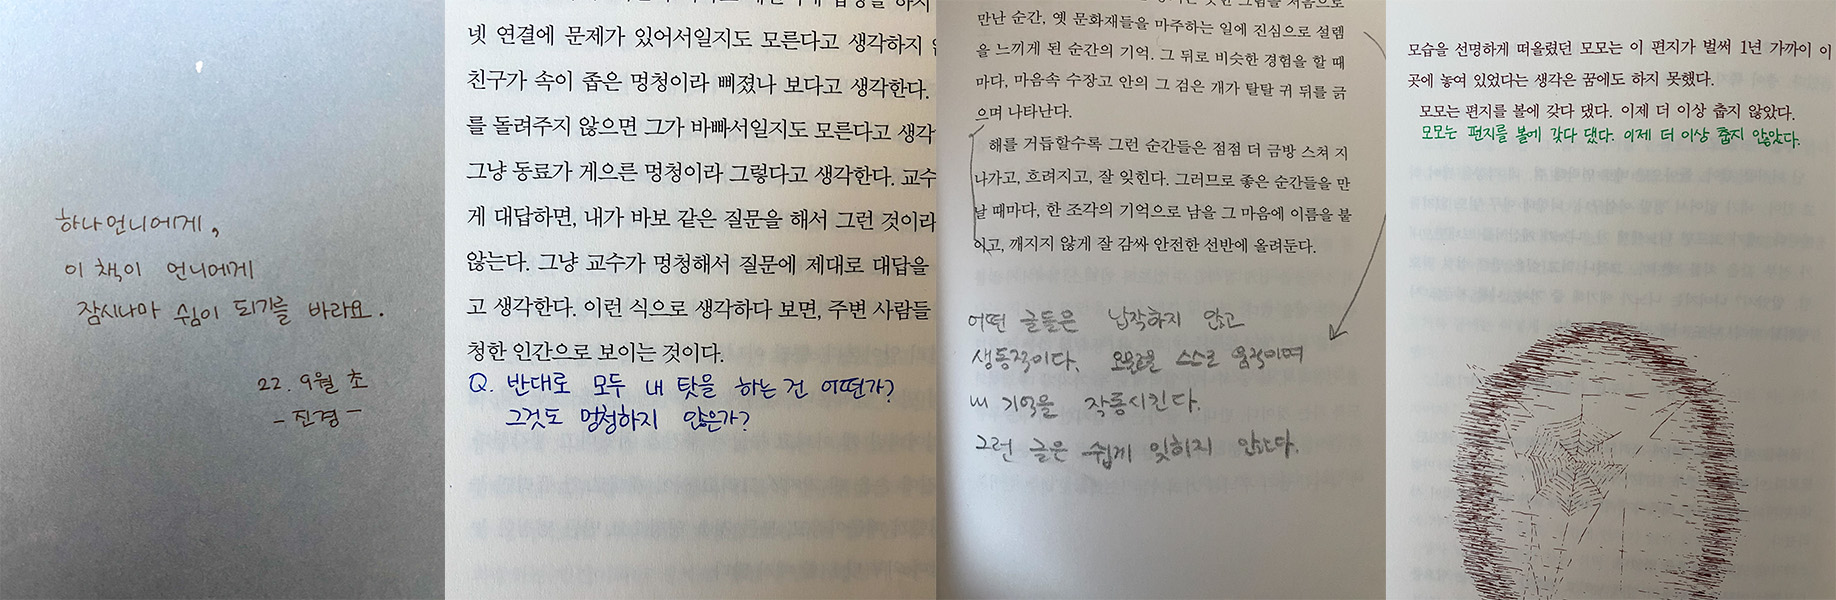 하나언니에게,
이 책이 언니에게
잠시나마 쉼이 되기를 바라요.
22. 9월 초
- 진경 -
넷 연결에 문제가 있어서일지도 모른다고 생각하지
친구가 속이 좁은 멍청이라 삐졌나 보다고 생각한다.
를 돌려주지 않으면 그가 바빠서일지도 모른다고 생각
그냥 동료가 게으른 멍청이라 그렇다고 생각한다. 교수
게 대답하면, 내가 바보 같은 질문을 해서 그런 것이라
않는다. 그냥 교수가 멍청해서 질문에 제대로 대답을
고 생각한다. 이런 식으로 생각하다 보면, 주변 사람들
청한 인간으로 보이는 것이다.
Q. 반대로 모두 내 탓을 하는 건 어떤가?
그것도 멍청하지 않은가?
만난 순간, 옛 문화재들을 마주하는 일에 진심으로 설렘
을 느끼게 된 순간의 기억. 그 뒤로 비슷한 경험을 할 때
마다, 마음속 수장고 안의 그 검은 개가 탈탈 귀 뒤를 긁
으며 나타난다.
해를 거듭할수록 그런 순간들은 점점 더 금방 스쳐 지
나가고, 흐려지고, 잘 잊힌다. 그러므로 좋은 순간들을 만
날 때마다, 한 조각의 기억으로 남을 그 마음에 이름을 붙
이고, 깨지지 않게 잘 감싸 안전한 선반에 올려둔다.
어떤 글들은 납작하지 않고
생동적이다. 스스로 움직이며
내 기억을 작동시킨다.
그런 글은 쉽게 잊히지 않는다.
모습을 선명하게 떠올렸던 모모는 이 편지가 벌써 1년 가까이 이
곳에 놓여 있었다는 생각은 꿈에도 하지 못했다.
모모는 편지를 볼에 갖다 댔다. 이제 더 이상 춥지 않았다.
모모는 편지를 볼에 갖다 댔다. 이제 더 이상 춥지 않았다.